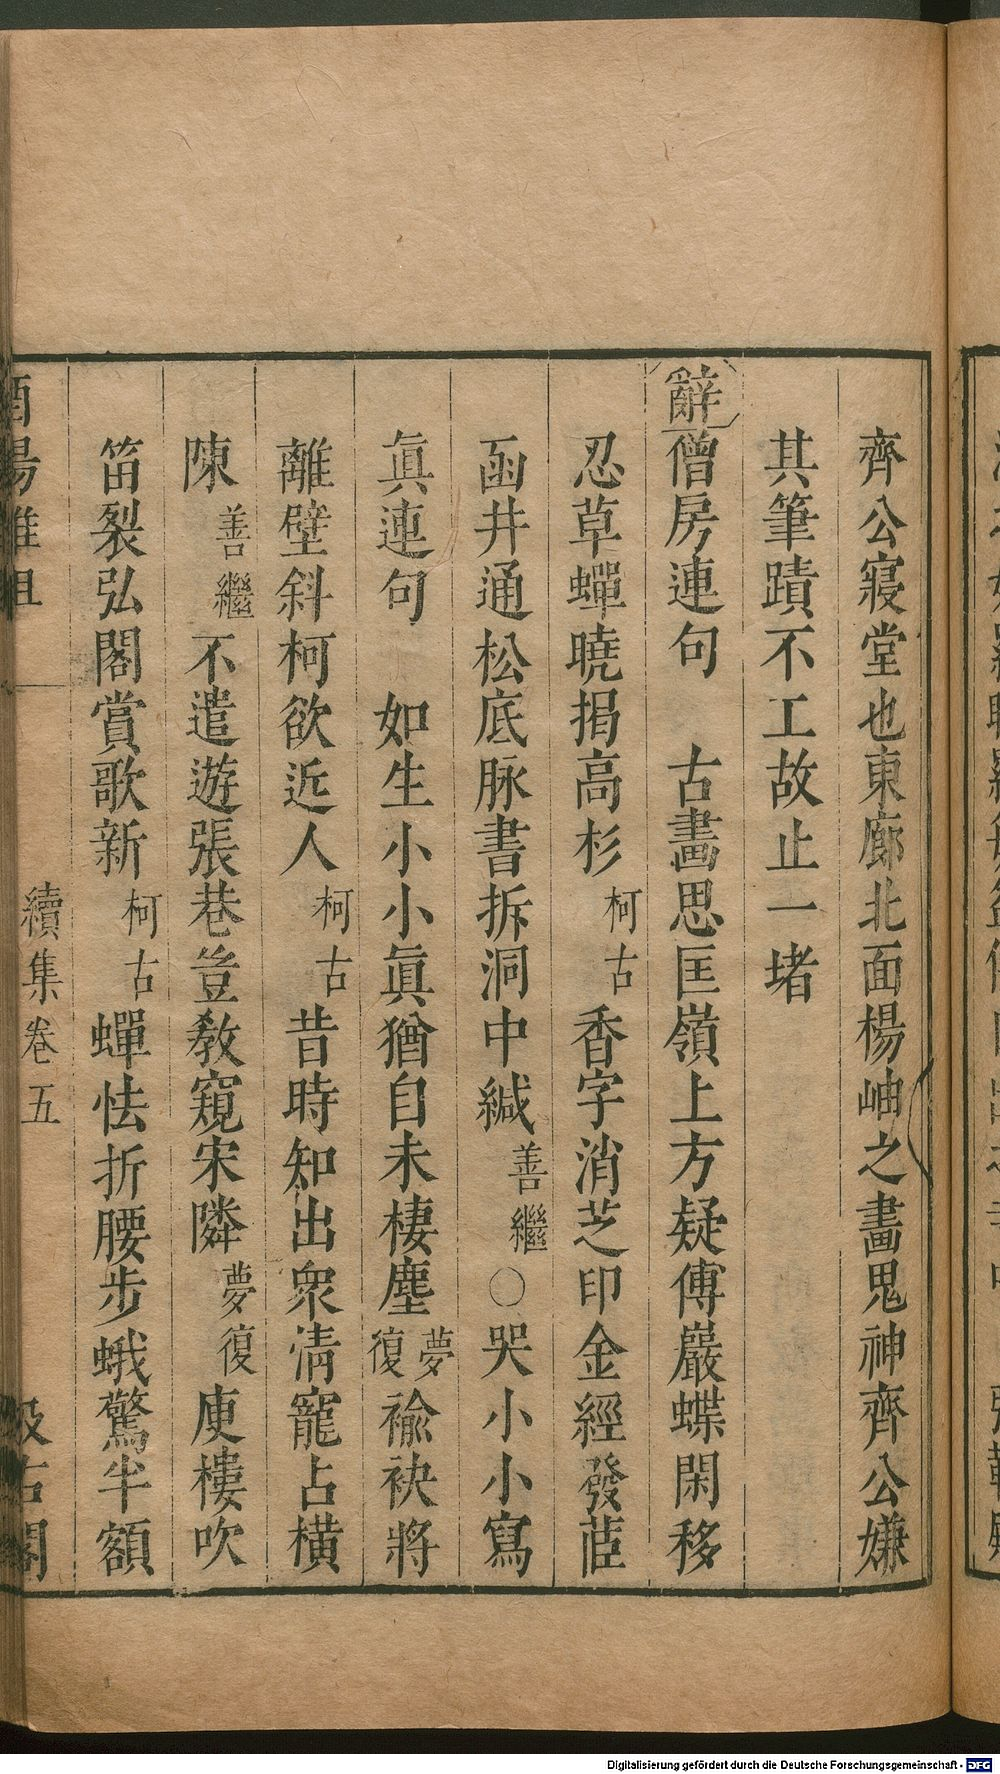 齊公寢堂也東廊北面楊岫之畫鬼神齊公嫌
其筆蹟不工故止一堵
辭僧房連句 古畫思匡嶺上方疑傅嚴蝶閑移
忍草蟬曉揖高杉柯古香字消芝印金經發茝
函井通松底脉書拆洞中緘善繼○哭小小寫
眞連句 如生小小眞猶自未棲塵夢復褕袂將
離壁斜柯欲近人柯古昔時知出衆淸寵占橫
陳善繼不遣遊張巷豈敎窺宋隣夢復庾樓吹
笛裂弘閣賞歌新柯古蟬怯折腰步蛾驚半額
酉陽雜俎 續集卷五 汲古閣
Digitalisierung gefördert durch die Deutsche Forschungsgemeinschaft - DFG